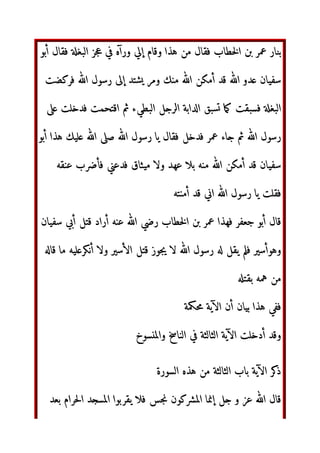 بنار عمر بن الخطاب فقال من هذا وقام إلي ورآه في عجز البغلة فقال أبو
سفيان عدو الله قد أمكن الله منك ومر يشتد إلى رسول الله فركضت
البغلة فسبقت كما تسبق الدابة الرجل البطيء ثم اقتحمت فدخلت على
رسول الله ثم جاء عمر فدخل فقال يا رسول الله صلى الله عليك هذا أبو
سفيان قد أمكن الله منه بلا عهد ولا ميثاق فدعني فأضرب عنقه
فقلت يا رسول الله اني قد أمنته
قال أبو جعفر فهذا عمر بن الخطاب رضي الله عنه أراد قتل أبي سفيان
وهوأسير فلم يقل له رسول الله لا يجوز قتل الأسير ولا أنكرعليه ما قاله
من همه بقتله
ففي هذا بيان أن الآية محكمة
وقد أدخلت الآية الثالثة في الناسخ والمنسوخ
ذكر الآية باب الثالثة من هذه السورة
قال الله عز و جل إنما المشركون نجس فلا يقربوا المسجد الحرام بعد